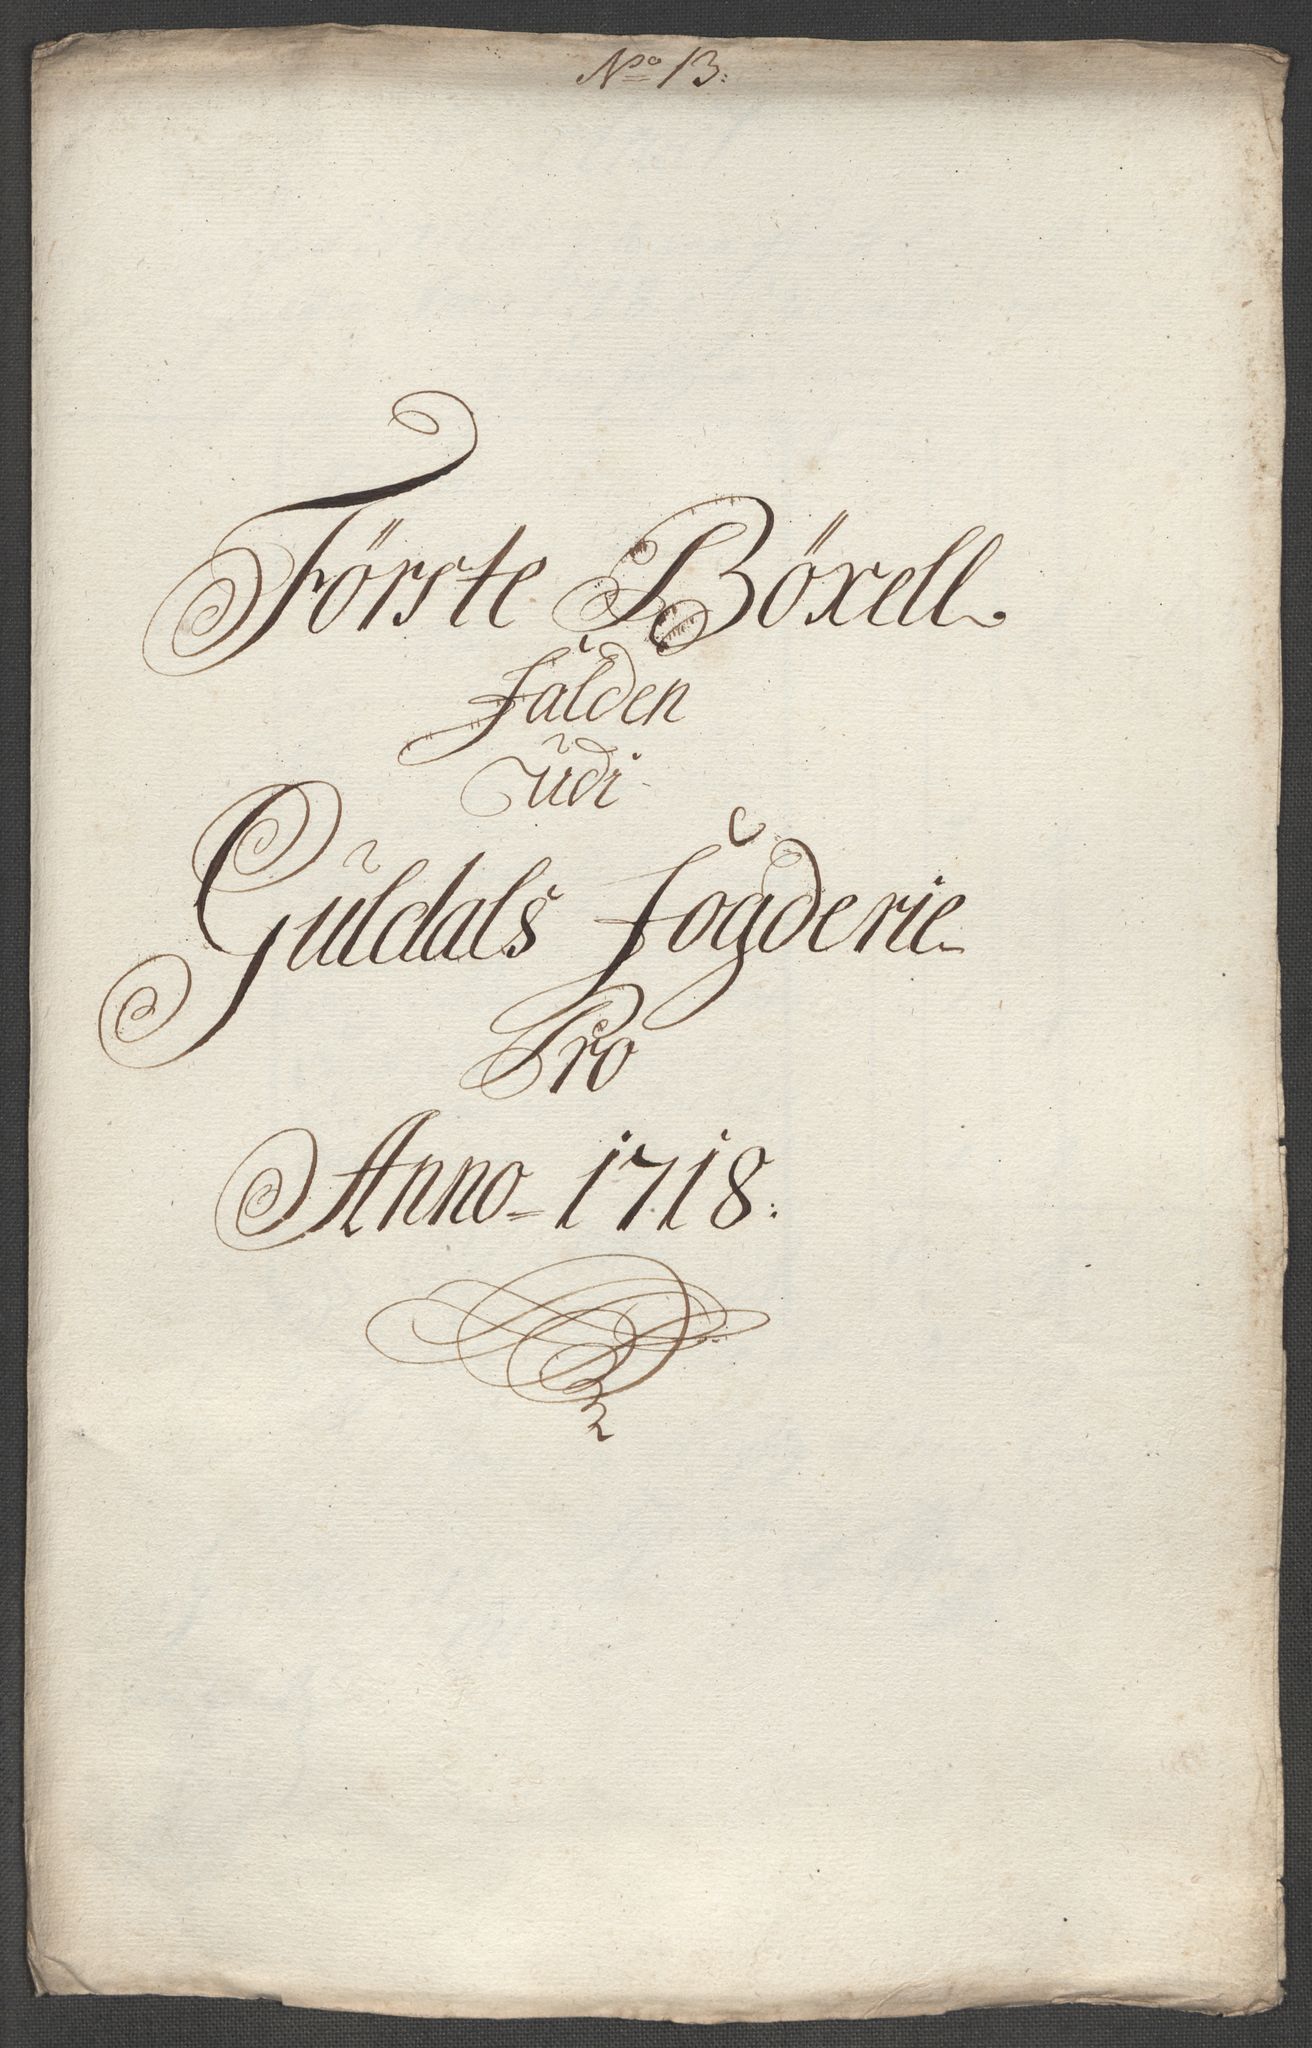 No 13:
Förste Böxell
falden
udi
Guldals fogderie
Pro
Anno 1718.